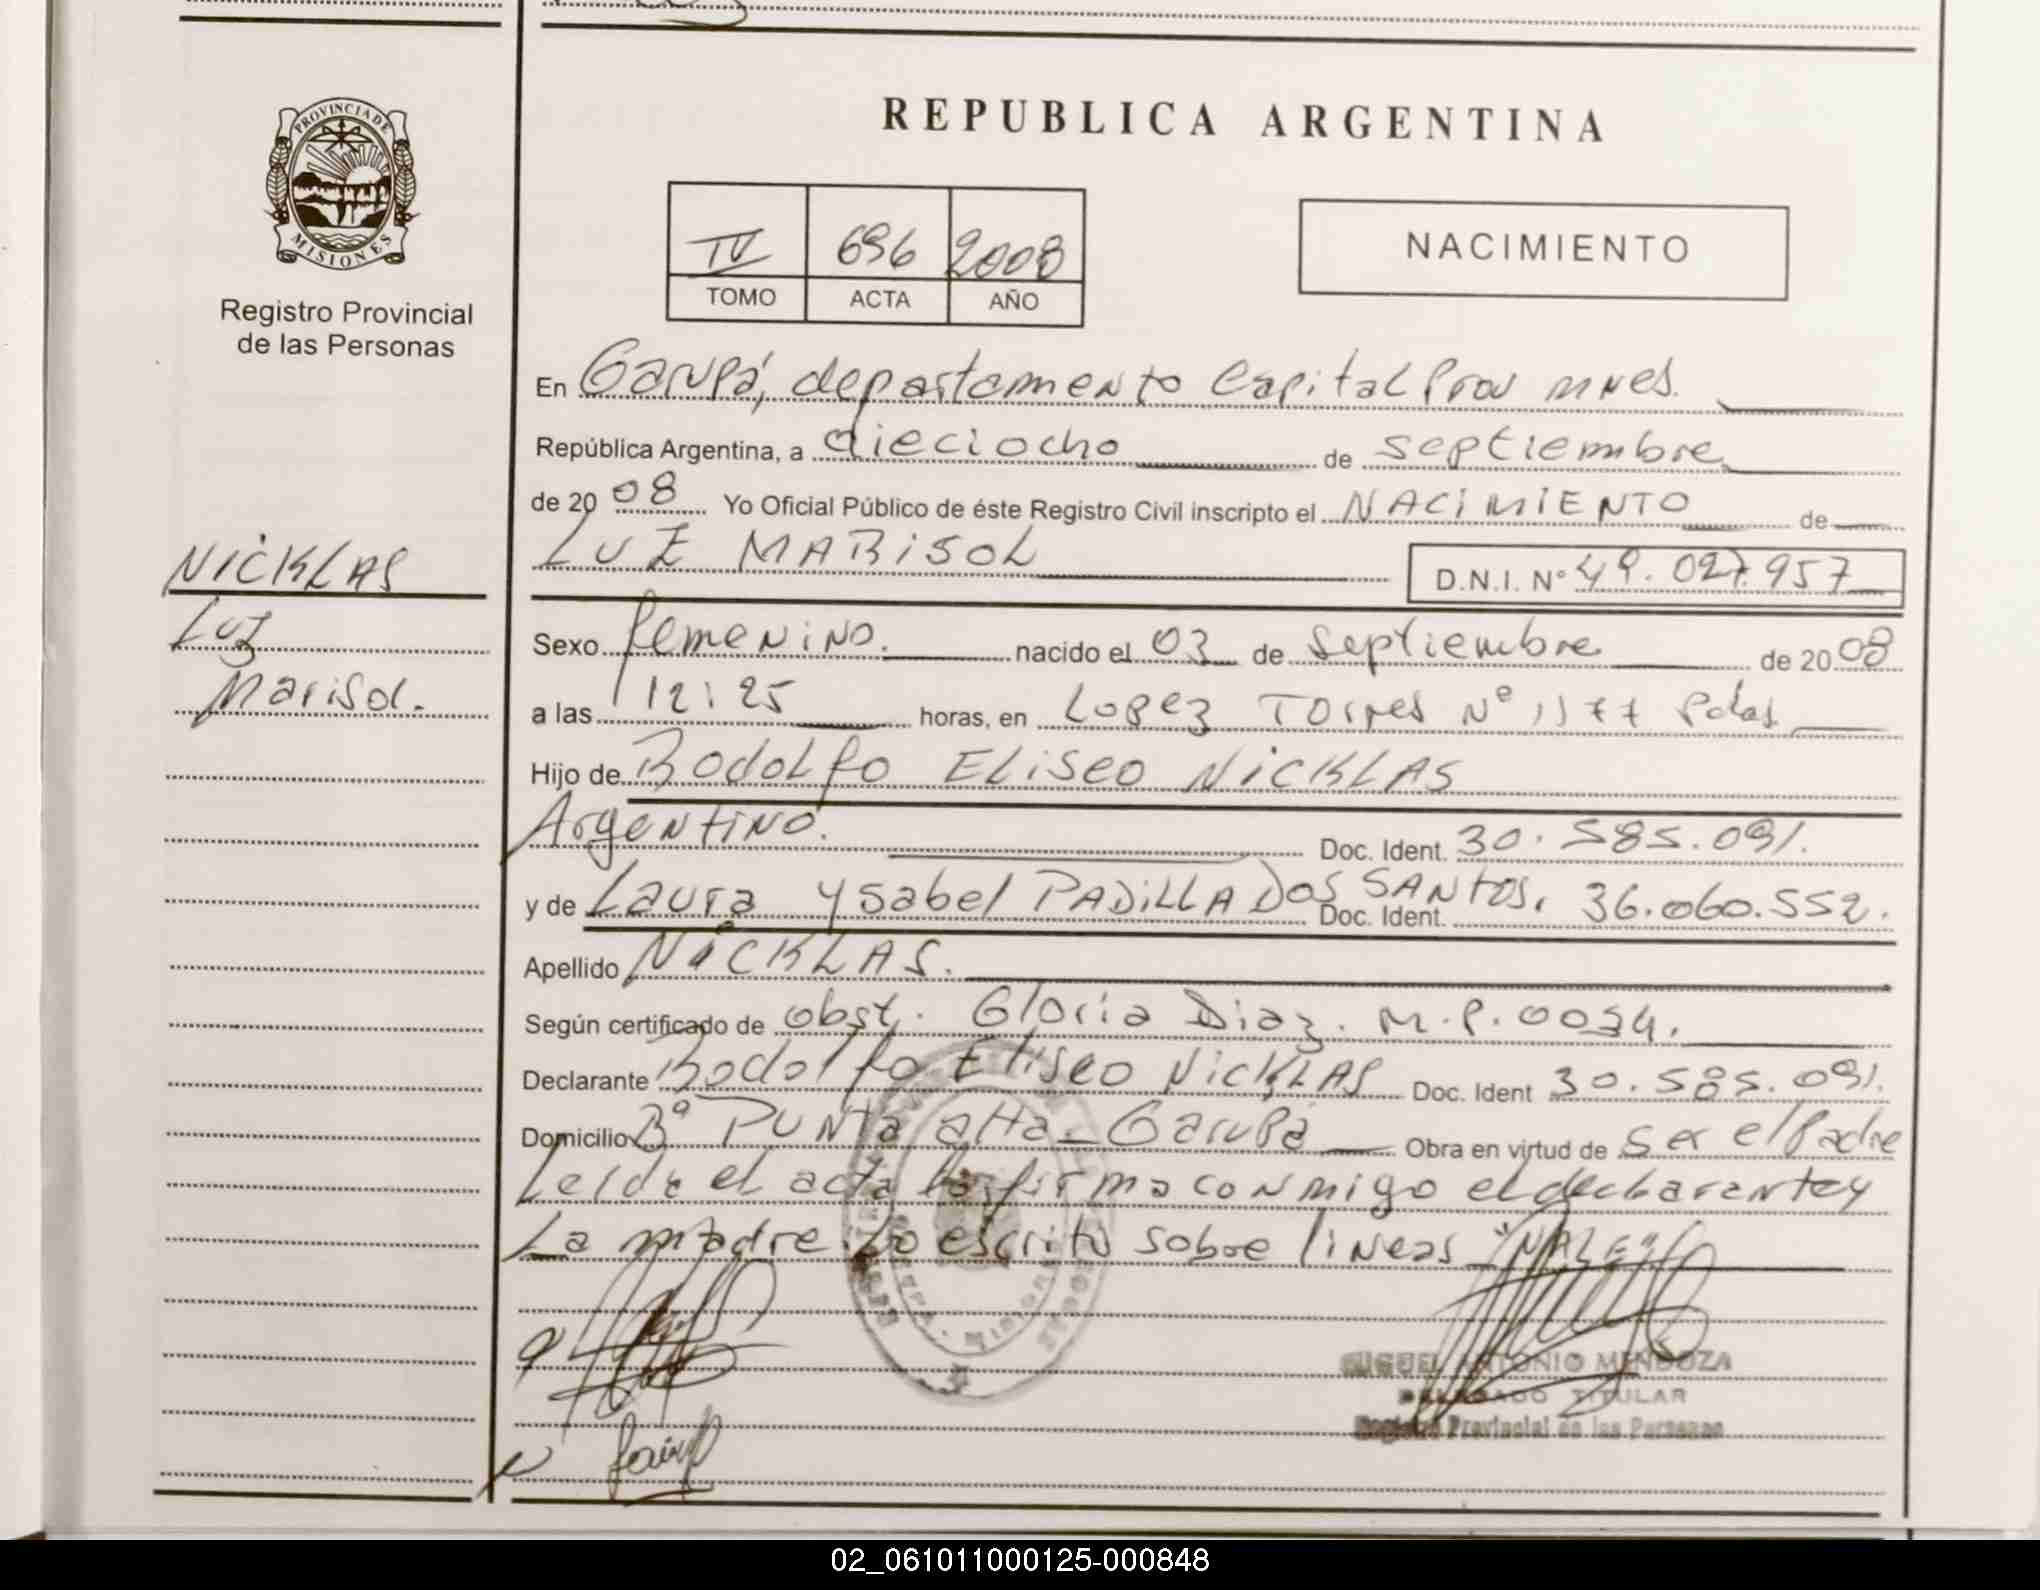 PROVINCIA DE
MISIONES
Registro Provincial
de las Personas
NICKLAS
Luz
Marisol.
REPUBLICA ARGENTINA
IV 696 2008
TOMO ACTA AÑO
NACIMIENTO
En Garupá, departamento Capital Prov mnes.
República Argentina, a dieciocho de septiembre
de 2008 Yo Oficial Público de éste Registro Civil inscripto el NACIMIENTO de
LUZ MARISOL D.N.I. Nº 49.027.957
Sexo femenino. nacido el 03 de septiembre de 2008
a las 12:25 horas, en Lopez Torres Nº 1177 Pdas.
Hijo de Rodolfo Eliseo NICKLAS
Argentino. Doc. Ident. 30.585.091.
y de Laura Ysabel PADILLA DOS SANTOS. Doc. Ident. 36.060.552.
Apellido NICKLAS.
Según certificado de obst. Gloria Diaz. M.P. 0034.
Declarante Rodolfo Eliseo NICKLAS Doc. Ident 30.585.091.
Domicilio Bº Punta alta - Garupá Obra en virtud de ser el Padre
Leida el acta la firma conmigo el declarante y
La madre. Lo escrito sobre lineas "VALE"
MIGUEL ANTONIO MENDOZA
DELEGADO TITULAR
Registro Provincial de las Personas
02_061011000125-000848